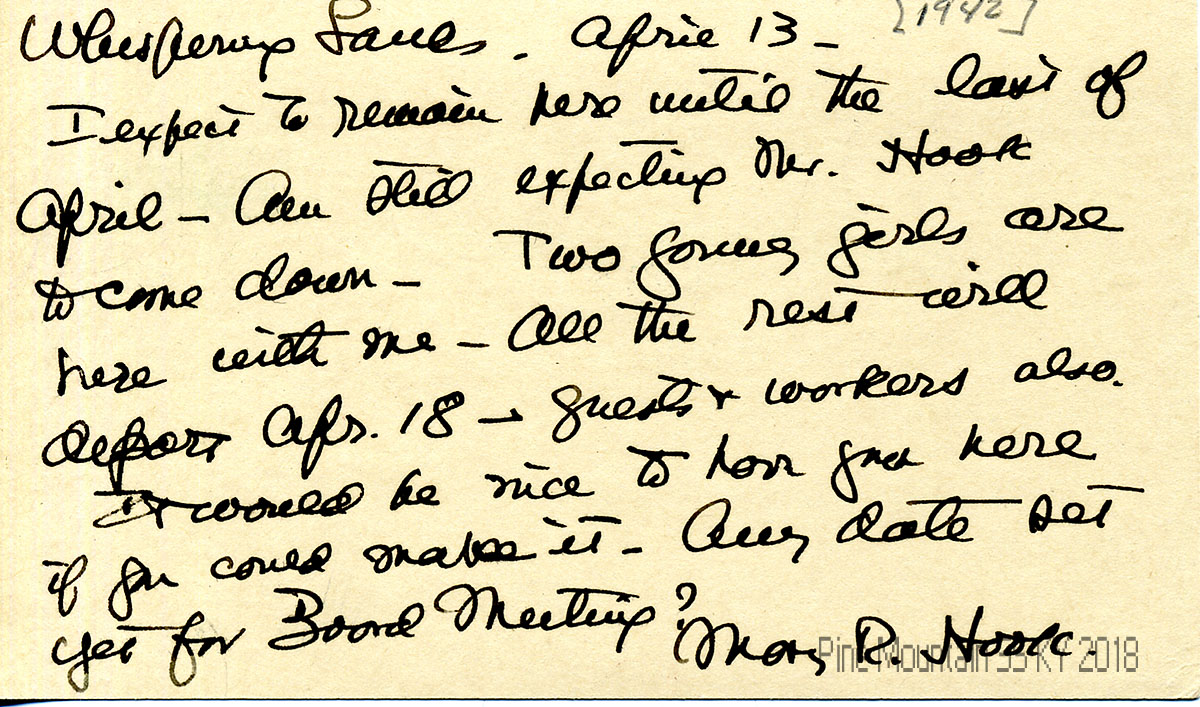 [1942]
Whispering Sands. April 13 –
I expect to remain here until the last of
April – Am still expecting Mr. Hook
to come down – Two young girls are
here with me – All the rest will
depart Apr. 18 – guests & workers also.
It would be nice to have you here
if you could make it – Any date set
yet for Board Meeting?
Mary R. Hook.
Pine Mountain SS KY 2018